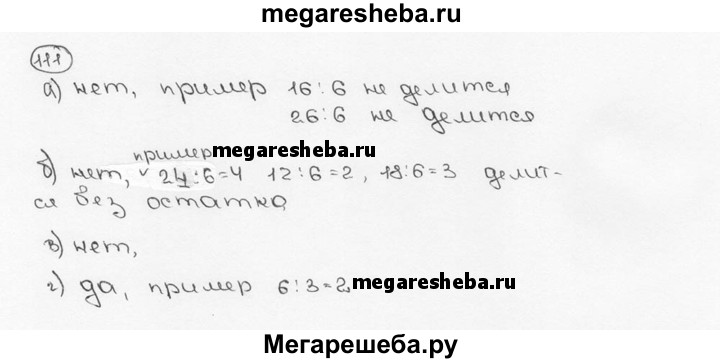 megaresheba.ru
111
а) нет, пример 16:6 не делится
26:6 не делится
пример megaresheba.ru
б) нет, 24:6=4 12:6=2, 18:6=3 делит-
ся без остатка
в) нет,
г) да, пример 6:3=2 megaresheba.ru
Мегарешеба.ру